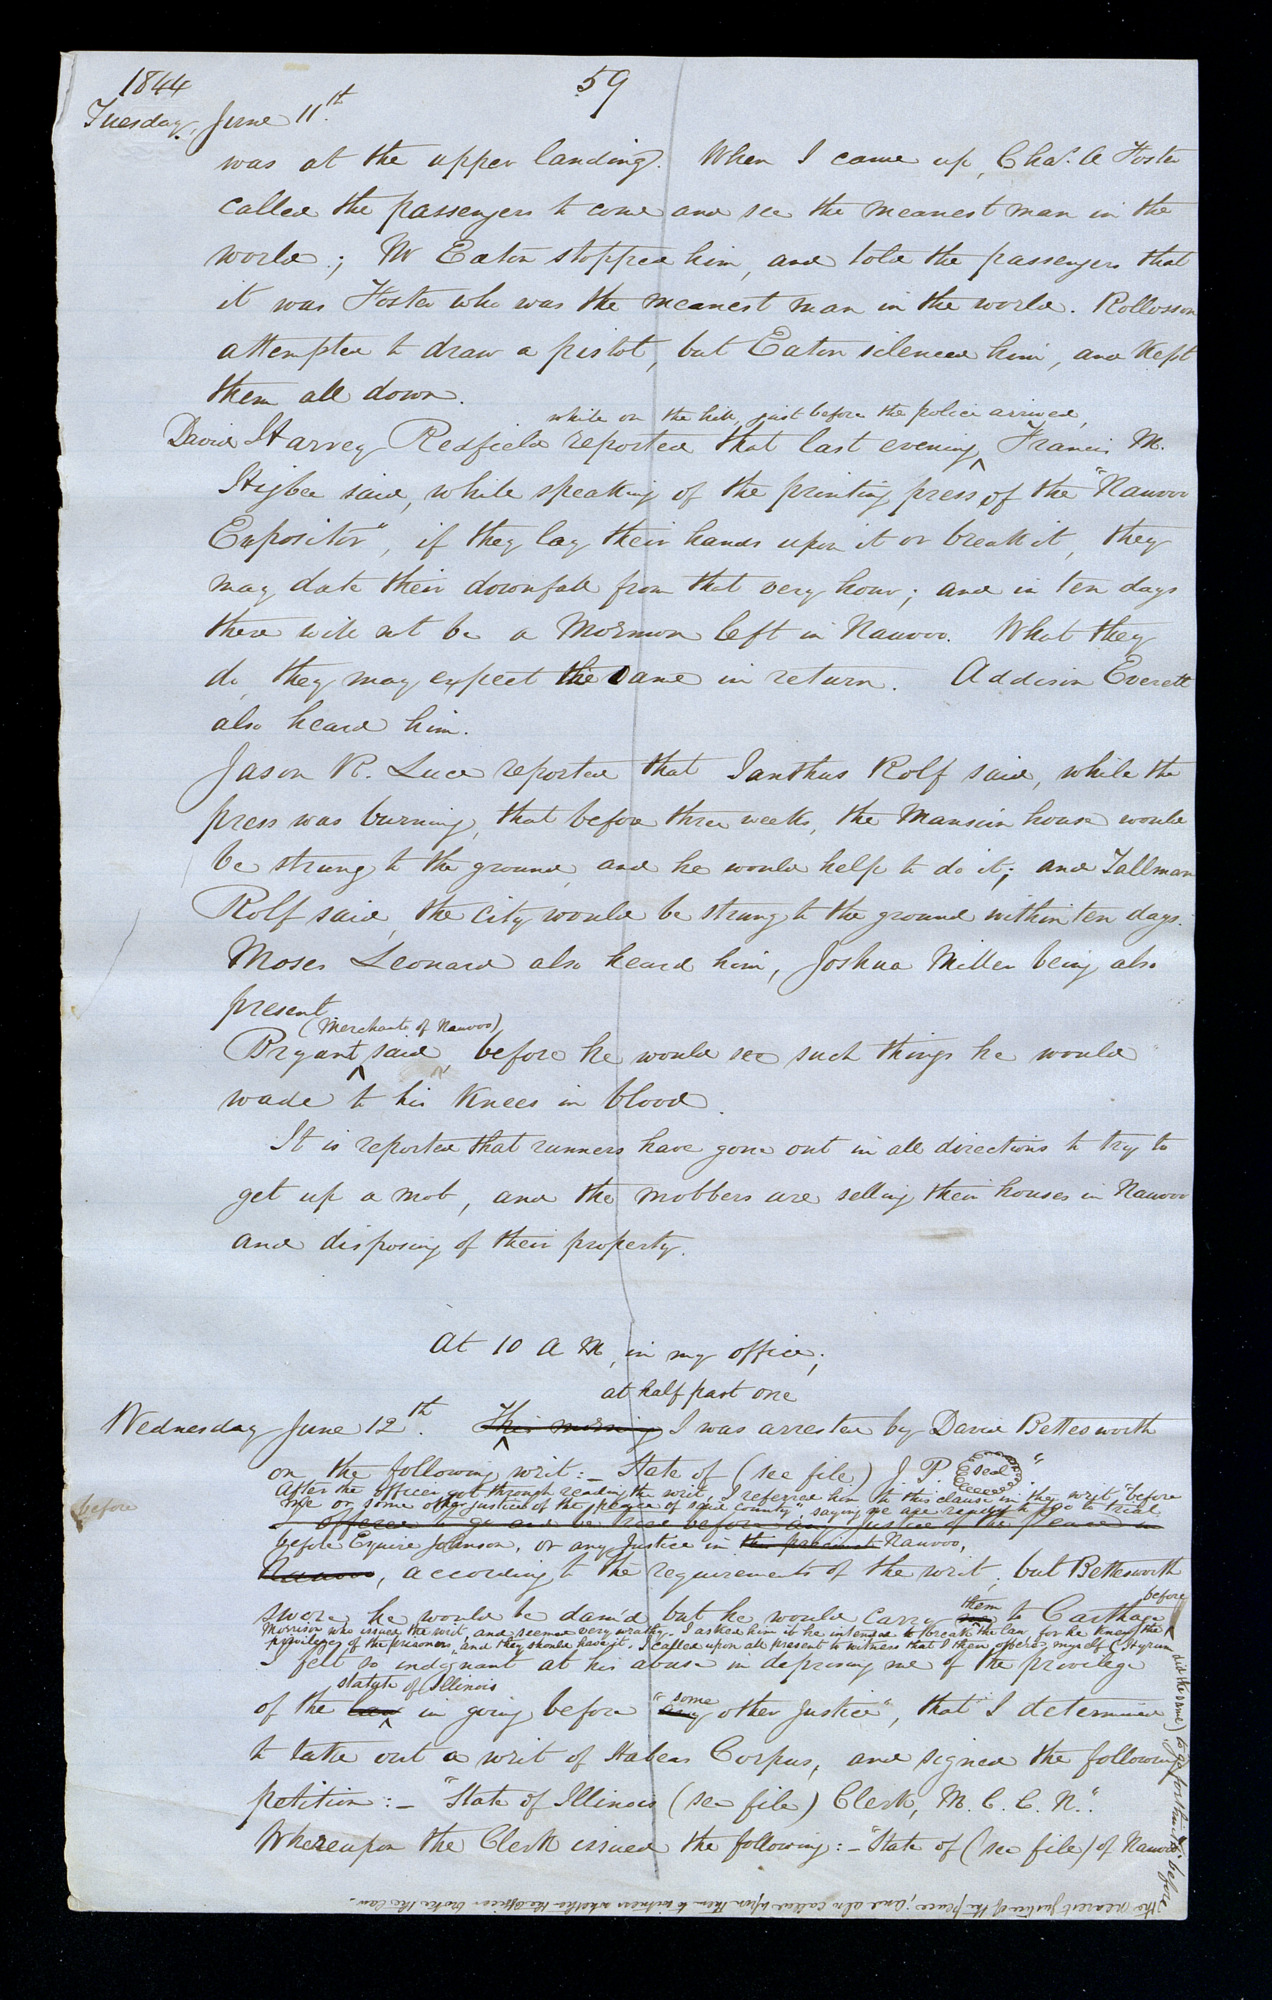 1844
59
Tuesday, June 11th.
was at the upper landing. When I came up, Chas. A Foster
called the passengers to come and see the meanest man in the
world; Mr Eaton stopped him, and told the passengers that
it was Foster who was the meanest man in the world. Rollosson
attempted to draw a pistol, but Eaton silenced him, and kept
them all down.
while on the hill, just before the police arrived,
David Harvey Redfield reported that last evening, ^ Francis M.
Higbee said, while speaking of the printing press of the "Nauvoo
Expositor", if they lay their hands upon it or break it, they
may date their downfall from that very hour; and in ten days
there will not be a Mormon left in Nauvoo. What they
do, they may expect the same in return. Addison Everett
also heard him.
Jason R. Luce reported that Ianthus Rolf said, while the
press was burning, that before three weeks, the Mansion house would
be strung to the ground, and he would help to do it; and Tallman
Rolf said, the city would be strung to the ground within ten days.
Moses Leonard also heard him, Joshua Miller being also
present
(Merchant of Nauvoo)
Bryant ^ said before he would see such things he would
wade to his knees in blood.
It is reported that runners have gone out in all directions to try to
get up a mob, and the mobbers are selling their houses in Nauvoo
and disposing of their property.
At 10 A M, in my office,
at half past one
Wednesday June 12th. ^ This morning I was arrested by David Bettesworth
on the following writ:— State of (see file) J. P. seal"
After the officer got through reading the writ, I referred him to this clause in the writ "before
me or some other justice of the peace of said county", saying we are ready to go to trial,
offered to go and be tried before any Justice of the Peace in
before Esquire Johnson, or any Justice in the precinct Nauvoo,
before
Nauvoo, according to the requirements of the writ; but Bettesworth
them before
swore he would be dam'd but he would carry me to Carthage ^
Morrison who issued the writ, and seemed very wrathy. I asked him if he intended to break the law, for he knew the
privilege of the prisoners, and they should have it. I called upon all present to witness that I then offered myself (Hyrum
did the same) to go forthwith before
the nearest justice of the peace; and also called upon them to witness whether the officer broke the law.
I felt so indignant at his abuse in depriving me of the privilege
statute of Illinois some
of the law ^ in going before "any other Justice", that I determined
to take out a writ of Habeas Corpus, and signed the following
petition:— "State of Illinois (see file) Clerk, M. C. C. N."
Whereupon the Clerk issued the following:— "State of (see file) of Nauvoo